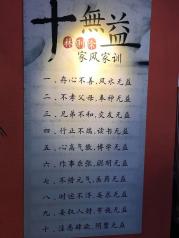 十無益
林則徐
家风家训
一、存心不善，风水无益
二、不孝父母，奉神无益
三、兄弟不和，交友无益
四、行止不端，读书无益
五、心高气傲，博学无益
六、作事乖张，聪明无益
七、不惜元气，医药无益
八、时运不济，妄求无益
九、妄取人财，布施无益
十、淫恶肆欲，阴骘无益